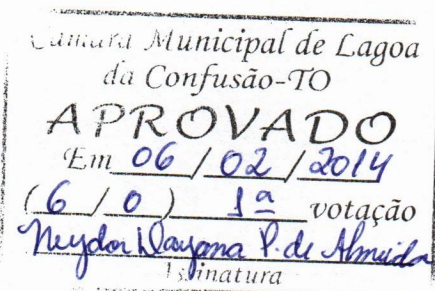 Câmara Municipal de Lagoa
da Confusão-TO
APROVADO
Em 06 / 02 / 2014
(6 / 0) 1ª votação
Dayana P. de Almeida
Assinatura